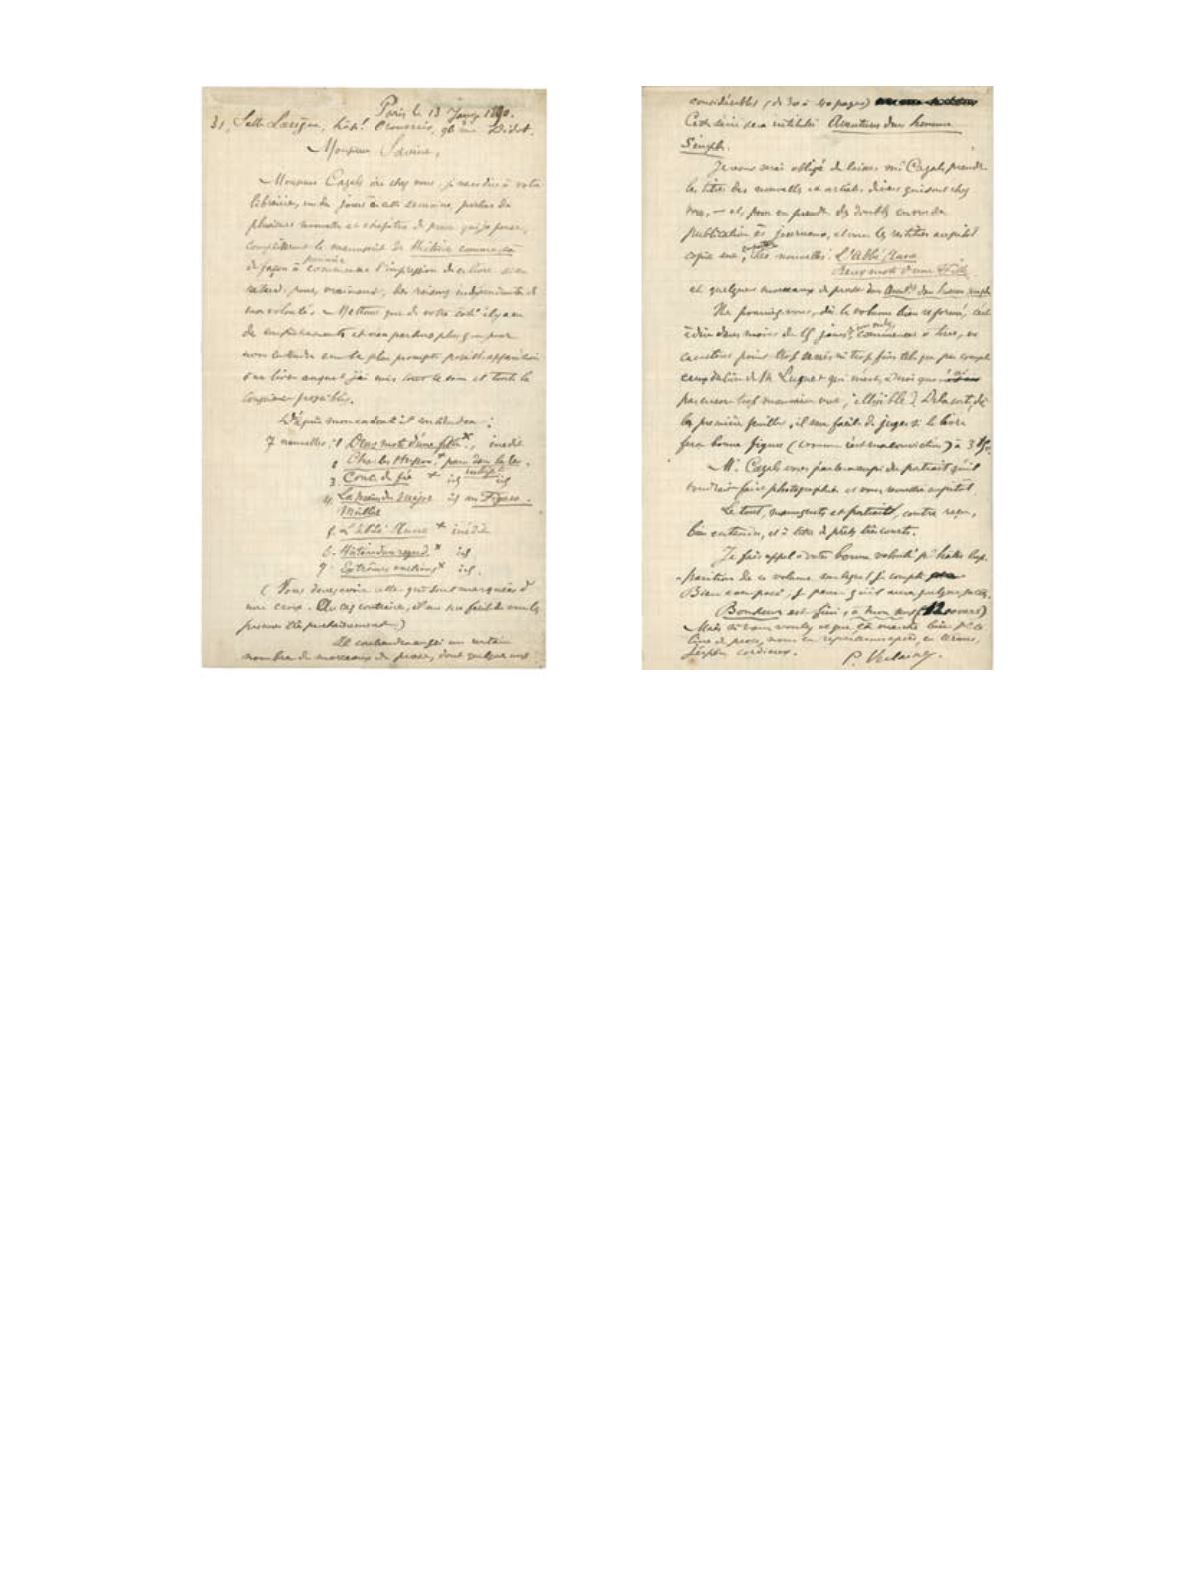 Paris le 13 Janv. 1890.
31, Salle Lasègue, hôp! Broussais, 96 rue Didot.
Monsieur Savine,
Monsieur Cazals ira chez vous, je veux dire à votre
librairie, un de jours cette semaine, porteur de
plusieurs nouvelles et chapitres de prose qui, je pense,
complèteront le manuscrit de Histoires comme ça
de façon à commencer l'impression de ce livre si en
retard pour, vraiment, des raisons indépendantes de
ma volonté. Mettons que de votre côté il y a eu
de empêchements et n'en parlons plus que pour
nous entendre sur la plus prompte possible apparition
d'un livre auquel j'ai mis tout le soin et toute la
conscience possibles.
D'après mon
7 nouvelles: 1 Deux mots d'une fille x, inédit
2 Charles Husson x paru dans la
3. Conte de fée x id id
4. La main du Major id au Figaro.
Müller
5. L'abbé Anne x inédit
6. Histoire d'un regard x id
7. Extrêmes onctions x id.
(Vous devez avoir celles qui sont marquées d'
une croix. Au cas contraire, il me sera facile de vous les
procurer très prochainement.)
Il contiendra aussi un certain
nombre de morceaux de prose, dont quelques uns
considérables (de 30 à 40 pages)
Cette série sera intitulée Aventures d'un homme
simple.
Je vous serai obligé de laisser Mr Cazals prendre
les titres des nouvelles et articles divers qui sont chez
vous, — et, pour en prendre des doubles en vue de
publication ès journaux, et vous les restituer aussitôt
copie une, des nouvelles: L'Abbé Anne
Deux mots d'une Fille
et quelques morceaux de prose des Avent. d'un homme simple
Ne pourriez-vous, dès le volume bien reformé, c'est
à dire dans moins de 15 jours, commencer à tirer, en
caractères point trop serrés ni trop fins tels que par exemple
ceux du livre de M. Luguet qui m'est, à moi qui
pas encore trop mauvaise vue, illisible? De la sorte, dès
les premières feuilles, il sera facile de juger si le livre
fera bonne figure (comme c'est ma conviction) à 3 f 50.
Mr. Cazals vous parlera aussi du portrait qu'il
voudrait faire photographier et vous remettre aussitôt.
Le tout, manuscrits et portrait, contre reçu,
bien entendu, et à titre de prêts très courts.
Je fais appel à votre bonne volonté pr hâter l'ap-
parition de ce volume sur lequel je compte
Bien composé, je pense qu'il aura quelque succès.
Bonheur est fini, à mon sens (1200 vers)
Mais si vous voulez et que ça marche bien pr le
livre de prose, nous en reparlerons après, en
cordiaux.
P. Verlaine.